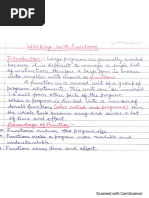 Working With Functions
Introduction :- Large programs are generally avoided
because it is difficult to manage a single list
of instructions, therefore a large program is broken
into smaller units known as functions.
A function is a named unit of a group of
program statements. This unit can be invoked
i.e. call from other parts of the program.
when a program is divided into a number of
small functions (also called sub programs) then
each function can be easily and saves a lot
of time and effort.
Advantage of Function :-
Functions reduces the program size
Functions makes a program more readable and
understandable.
Functions saves time and effort.
Scanned with CamScanner